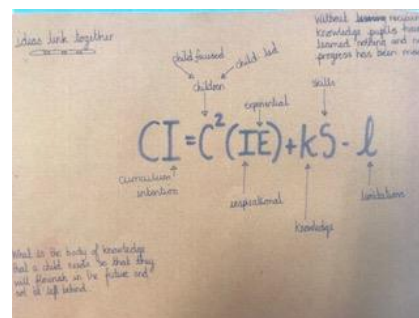 ideas link together
Without learning
knowledge pupils have
learned nothing and
progress has been
child focused
child-led
children
experiential
skills
CI = C²(IE) + kS - l
curriculum
intention
inspirational
knowledge
limitations
What is the body of knowledge
that a child needs so that they
will flourish in the future and
not be left behind.